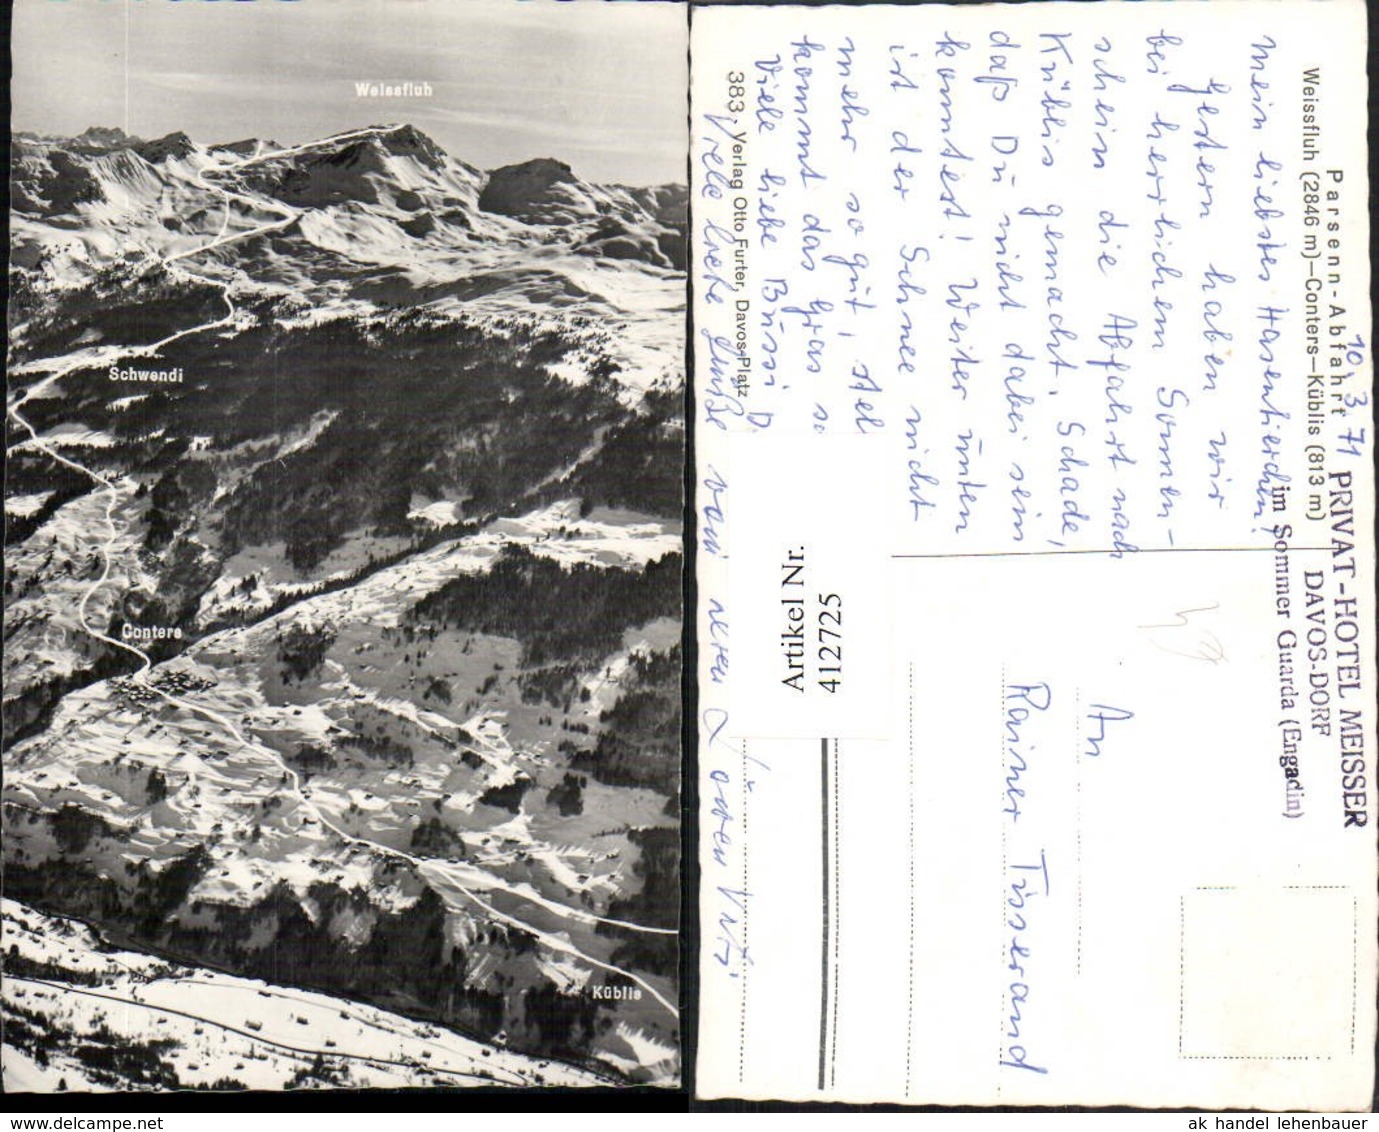 Weissfluh
Schwendi
Conters
Küblis
Parsenn-Abfahrt
Weissfluh (2846 m)—Conters—Küblis (813 m)
10.3.71
PRIVAT-HOTEL MEISSER
DAVOS-DORF
im Sommer Guarda (Engadin)
Mein liebstes Hasentierchen!
Gestern haben wir
bei herrlichem Sonnen-
schein die Abfahrt nach
Küblis gemacht. Schade,
daß Du nicht dabei sein
konntest! Weiter unten
ist der Schnee nicht
mehr so gut,
kommt das Gras
Viele liebe Bussi
Viele liebe Grüße von
383. Verlag Otto Furter, Davos-Platz
An
Rainer Tisserand
Artikel Nr.
412725
ak handel lehenbauer